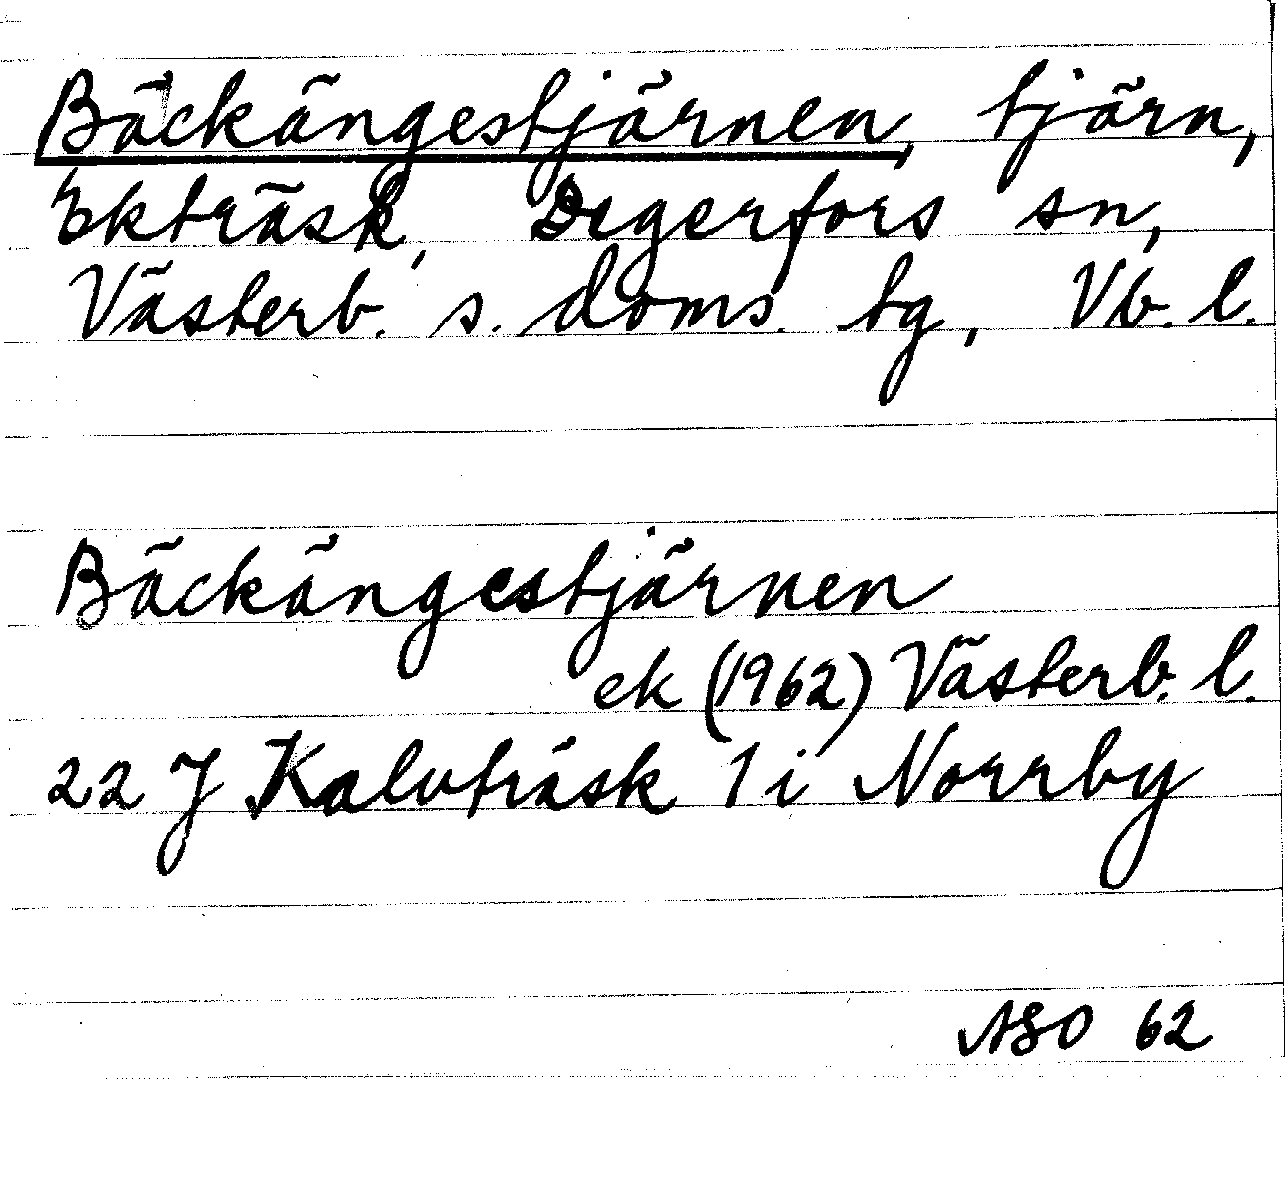 Bäckängestjärnen, tjärn,
Ekträsk, Degerfors sn,
Västerb. s. doms. tg, Vb. l.
Bäckängestjärnen
ek (1962) Västerb. l.
22 J Kalvträsk 1 i Norrby
ASO 62